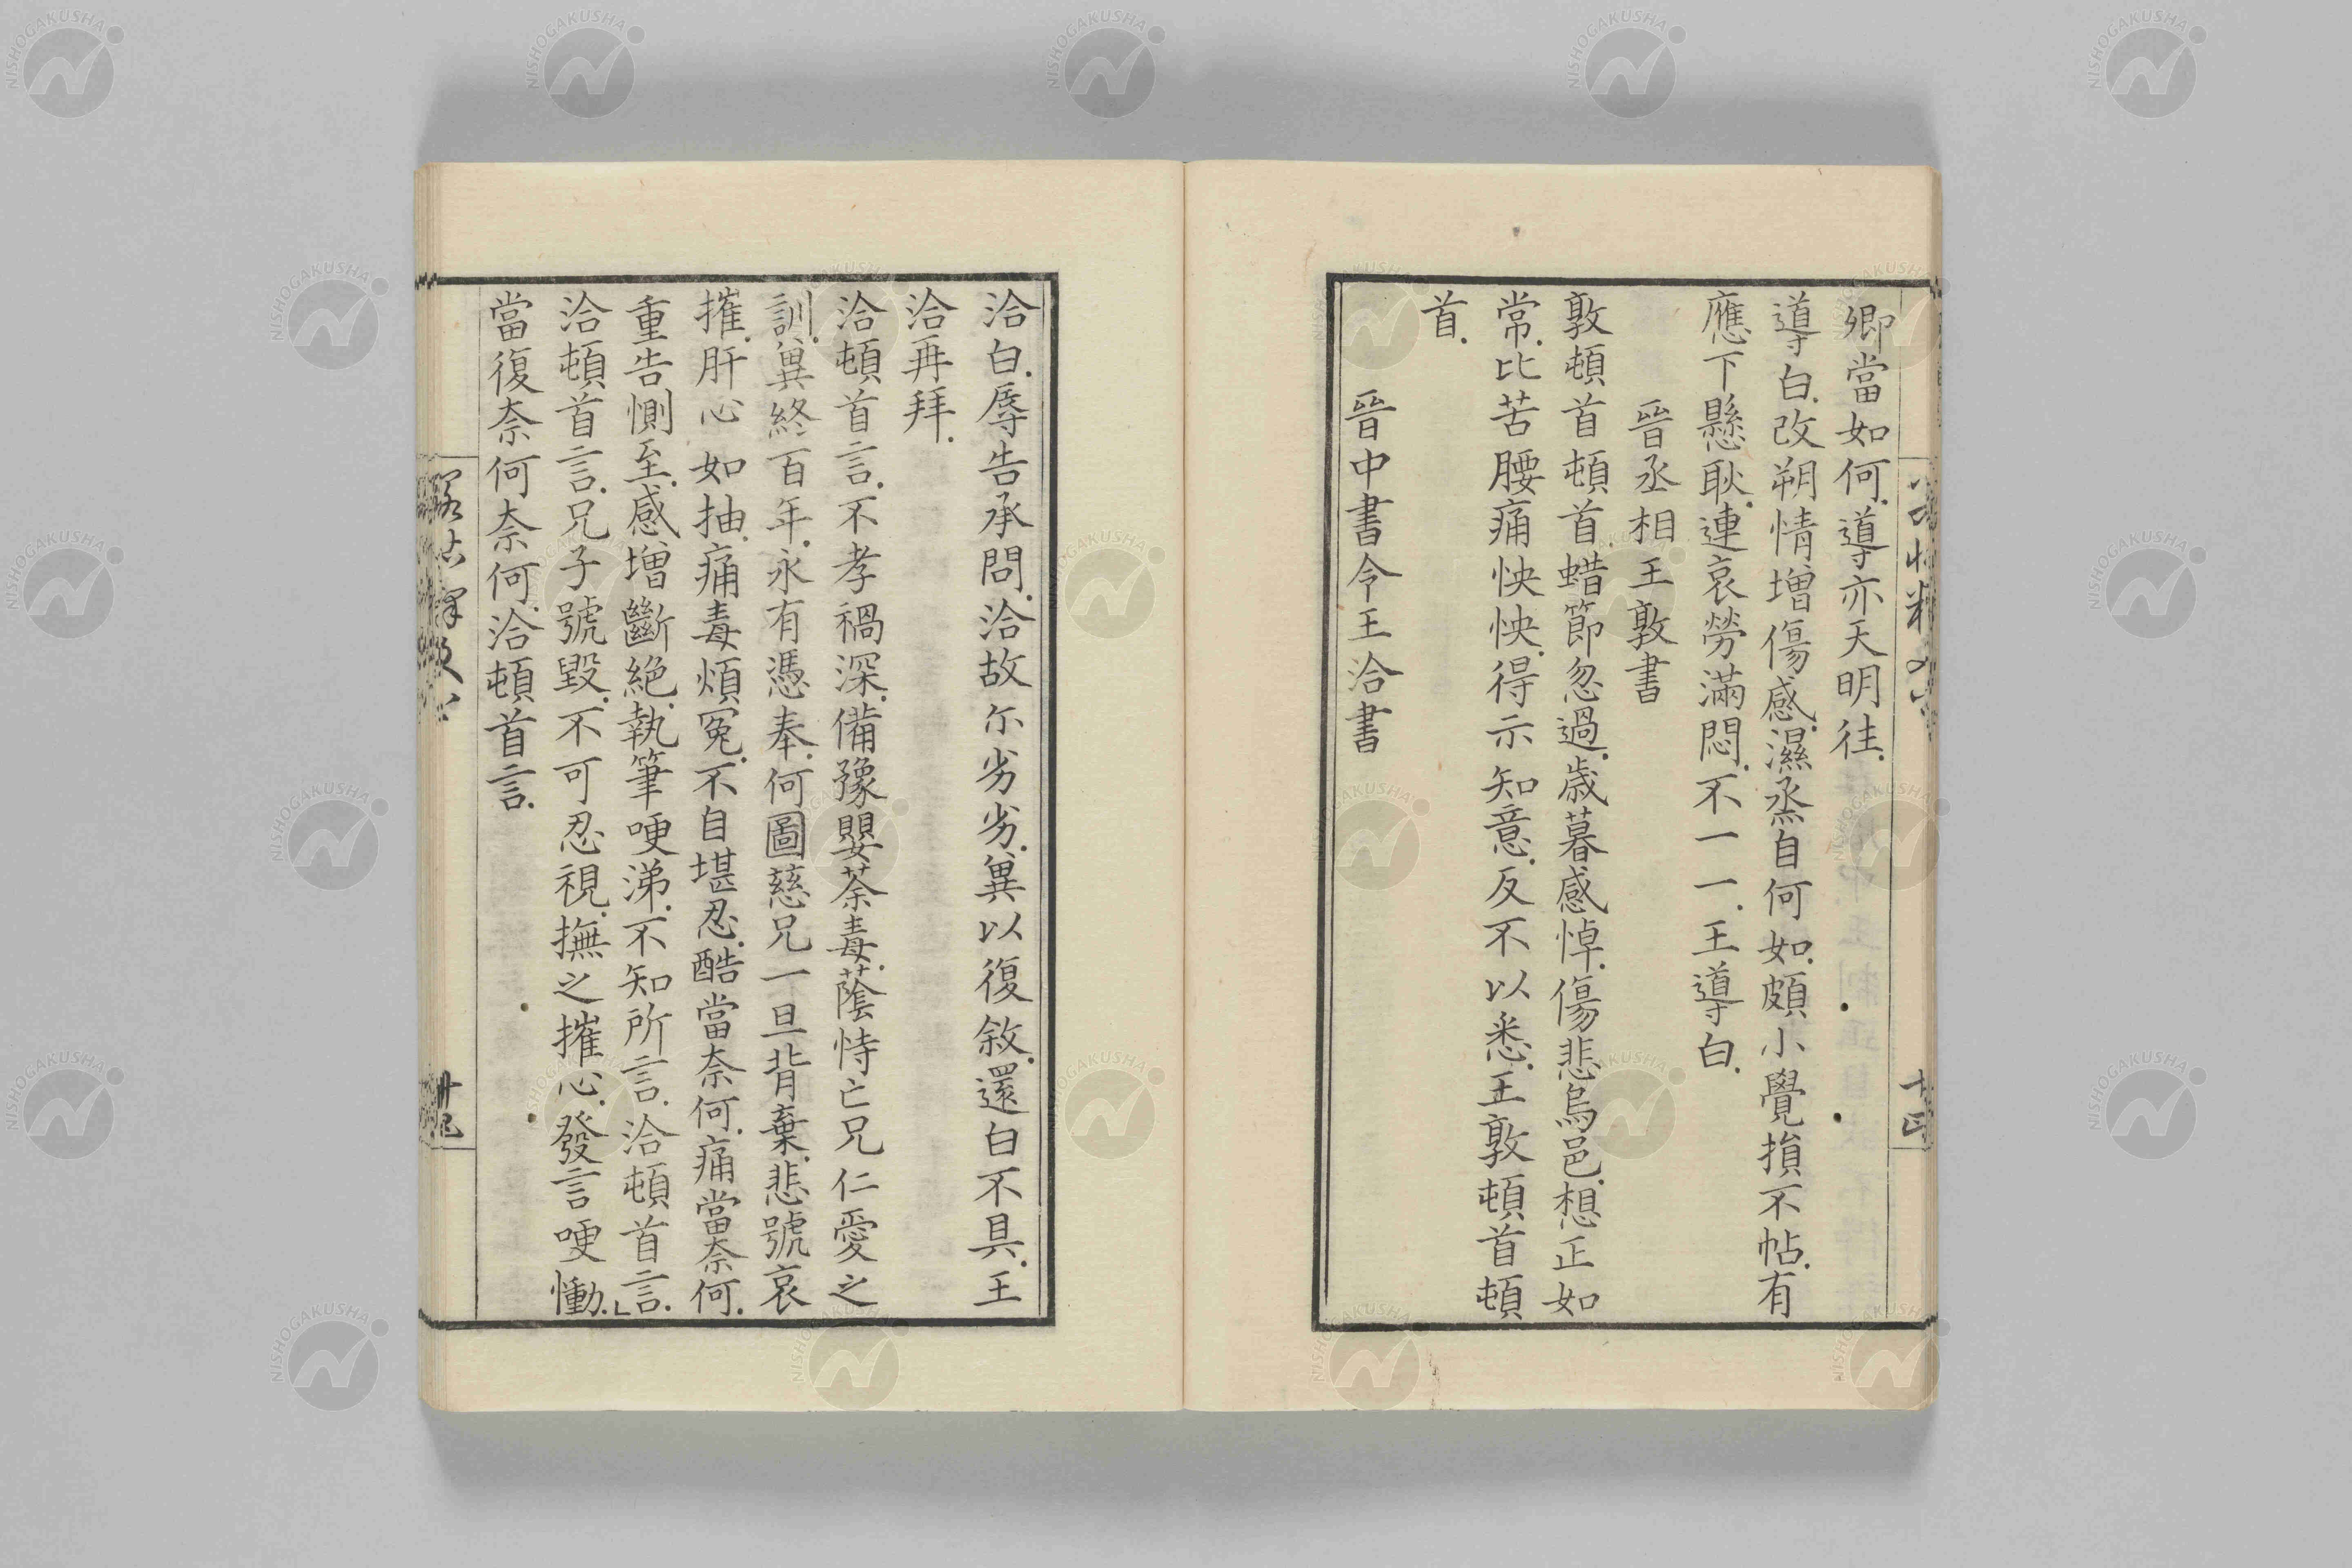 卿當如何.導亦天明往.
導白.改朔情增傷感.濕烝自何如.頗小覺損不帖.有
應下懸耿.連哀勞滿悶.不一一.王導白.
晉丞相王敦書
敦頓首頓首.蜡節忽過.歲暮感悼.傷悲烏邑.想正如
常.比苦腰痛怏怏.得示知意.反不以悉.王敦頓首頓
首.
晉中書令王洽書
洽白.辱告承問.洽故尓劣劣.異以復敘.還白不具.王
洽再拜.
洽頓首言.不孝禍深.備豫嬰荼毒.蔭恃亡兄仁愛之
訓.異終百年.永有憑奉.何圖慈兄一旦背棄.悲號哀
摧.肝心如抽.痛毒煩冤.不自堪忍.酷當奈何.痛當奈何.
重告惻至.感增斷絕.執筆哽涕.不知所言.洽頓首言.
洽頓首言.兄子號毀.不可忍視.撫之摧心.發言哽慟.
當復奈何奈何.洽頓首言.
NISHOGAKUSHA